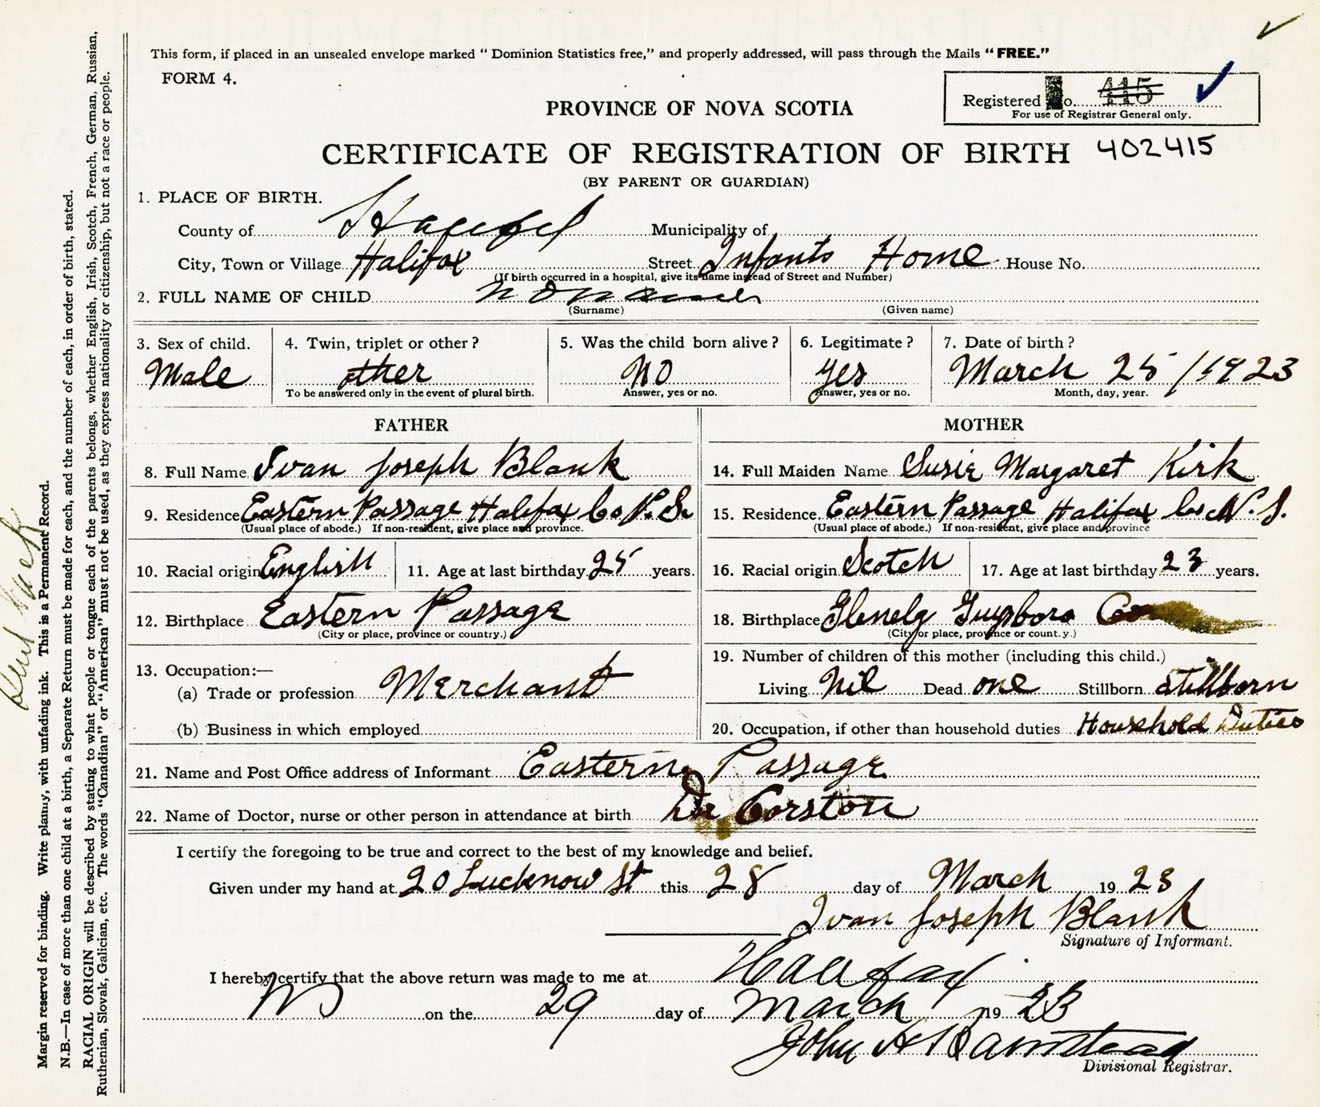 This form, if placed in an unsealed envelope marked "Dominion Statistics free," and properly addressed, will pass through the Mails "FREE."
FORM 4.
Registered No. 415
For use of Registrar General only.
PROVINCE OF NOVA SCOTIA
CERTIFICATE OF REGISTRATION OF BIRTH 402415
(BY PARENT OR GUARDIAN)
1. PLACE OF BIRTH.
County of Halifax Municipality of
City, Town or Village Halifax Street Infants Home House No.
(If birth occurred in a hospital, give its name instead of Street and Number)
2. FULL NAME OF CHILD
(Surname) (Given name)
3. Sex of child. 4. Twin, triplet or other? 5. Was the child born alive? 6. Legitimate? 7. Date of birth?
Male other NO yes March 25/1923
To be answered only in the event of plural birth. Answer, yes or no. Answer, yes or no. Month, day, year.
FATHER MOTHER
8. Full Name Ivan Joseph Blank 14. Full Maiden Name Susie Margaret Kirk
9. Residence Eastern Passage Halifax Co N.S. 15. Residence Eastern Passage Halifax Co N.S.
(Usual place of abode.) If non-resident, give place and province. (Usual place of abode.) If non-resident, give place and province
10. Racial origin English 11. Age at last birthday 25 years. 16. Racial origin Scotch 17. Age at last birthday 23 years.
12. Birthplace Eastern Passage 18. Birthplace Glenelg Guysboro Co
(City or place, province or country.) (City or place, province or country.)
13. Occupation:— 19. Number of children of this mother (including this child.)
(a) Trade or profession Merchant Living Nil Dead one Stillborn Stillborn
(b) Business in which employed 20. Occupation, if other than household duties Household Duties
21. Name and Post Office address of Informant Eastern Passage
22. Name of Doctor, nurse or other person in attendance at birth Dr Corston
I certify the foregoing to be true and correct to the best of my knowledge and belief.
Given under my hand at 20 Lucknow St this 28 day of March 19 23
Ivan Joseph Blank
Signature of Informant.
I hereby certify that the above return was made to me at Halifax
NS on the 29 day of March 19 23
John A
Divisional Registrar.
Margin reserved for binding. Write plainly, with unfading ink. This is a Permanent Record.
N.B.—In case of more than one child at a birth, a Separate Return must be made for each, and the number of each, in order of birth, stated.
RACIAL ORIGIN will be described by stating to what people or tongue each of the parents belongs, whether English, Irish, Scotch, French, German, Russian,
Ruthenian, Slovak, Galician, etc. The words "Canadian" or "American" must not be used, as they express nationality or citizenship, but not a race or people.